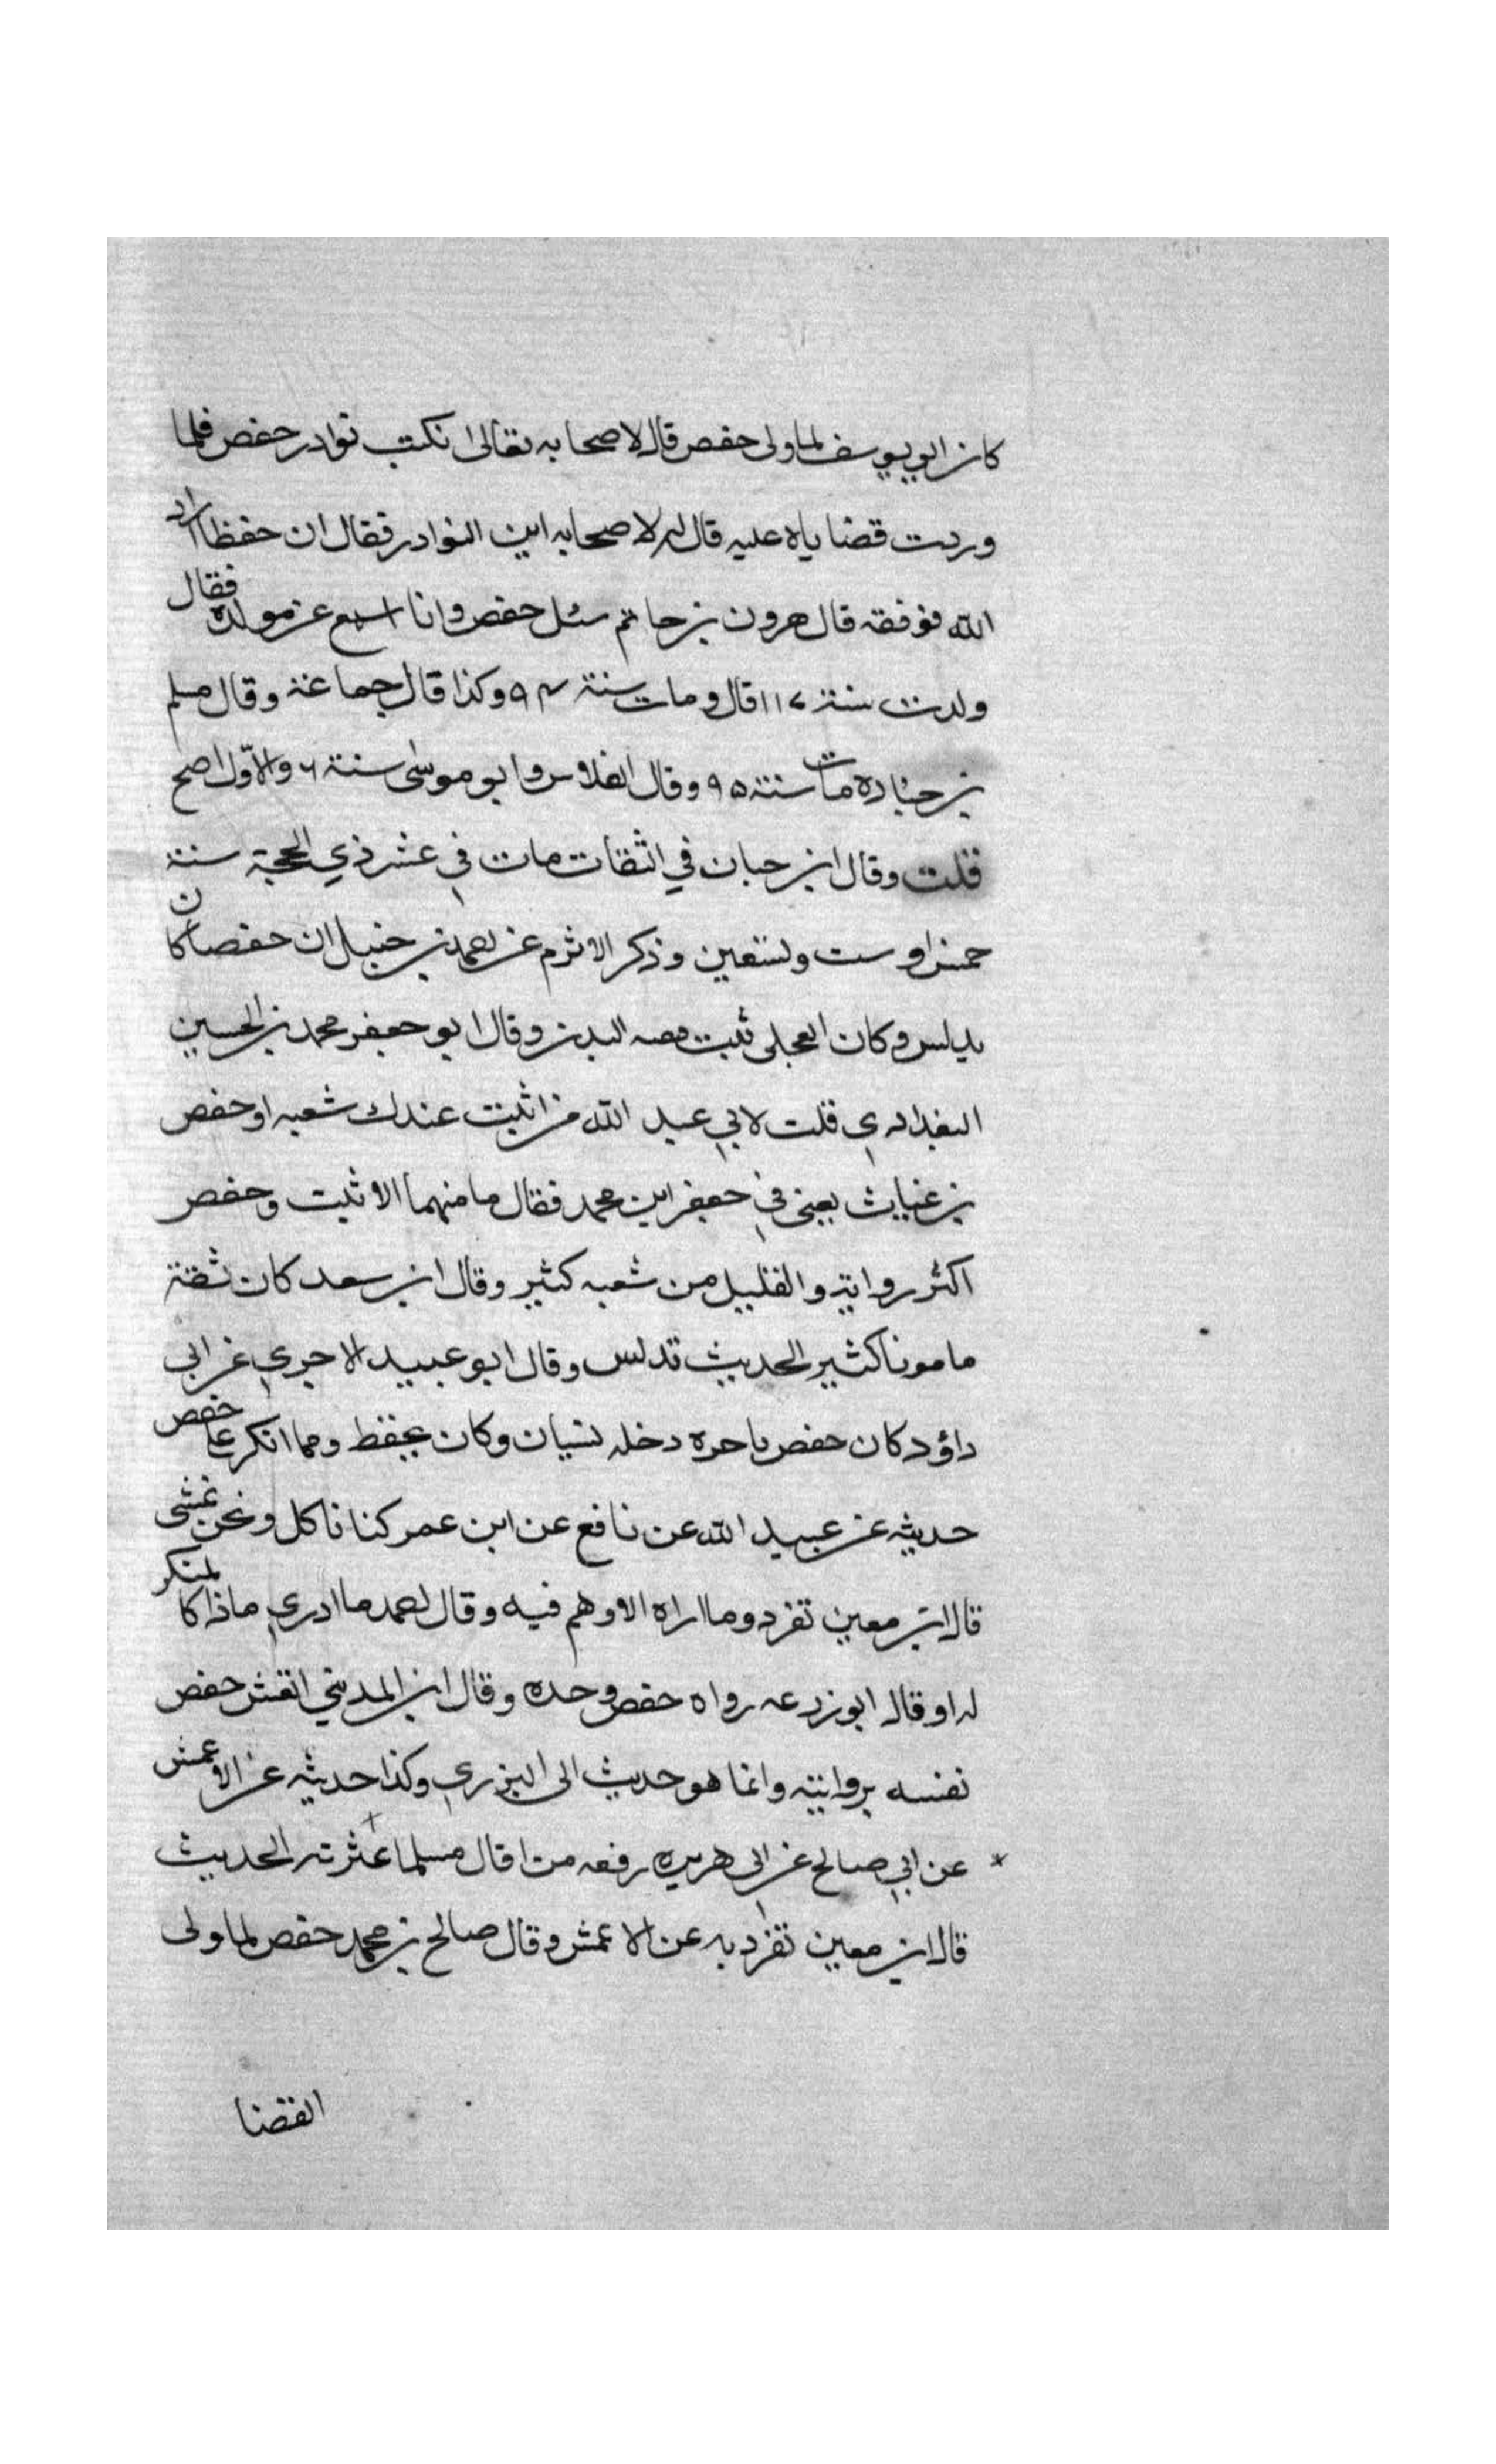 كان ابو يوسف لما ولى حفص قال لاصحابه تعالى انكتب نوادر حفص فلما
وردت قضاياه عليه قال له لاصحابه اين النوادر فقال ان حفظا اراد
الله فوفقه قال هرون بن حاتم سئل حفص وانا اسمع عن مولده فقال
ولدت سنة ١١٧ قال ومات سنة ٩٤ وكذا قال جماعة وقال مسلم
بن جنادة مات سنة ٩٥ وقال الفلاس وابو موسى سنة ٦ والاوّل اصح
قلت وقال ابن حبان في الثقات مات في عشر ذي الحجة سنة
خمس او ست وتسعين وذكر الاثرم عن احمد بن حنبل ان حفصا كان
يدلس وكان العجلى ثبت وقال ابو جعفر محمد بن الحسين
البغدادي قلت لابي عبد الله من اثبت عندك شعبه او حفص
بن غياث يعنى في جعفر ابن محمد فقال ما منهما الا ثبت وحفص
اكثر رواية والقليل من شعبه كثير وقال ابن سعد كان ثقة
مامونا كثير الحديث تدلس وقال ابو عبيد الاجري عن ابى
داؤد كان حفص باحره دخله نسيان وكان يحفظ ومما انكر علا حفص
حديثه عن عبيد الله عن نافع عن ابن عمر كنا ناكل ونحن نمشى
قال ابن معين تفرد وما اراه الا وهم فيه وقال احمد ما ادري ماذا كالمنكر
له او قال ابو زرعه رواه حفص وحده وقال ابن المديني انقش حفص
نفسه بروايته وانما هو حديث الى البزري وكذا حديثه عن الاعمش
عن ابي صالح عن ابى هريره رفعه من اقال مسلما عثرته الحديث
قال ابن معين تفرد به عن الاعمش وقال صالح بن محمد حفص لما ولى
القضا